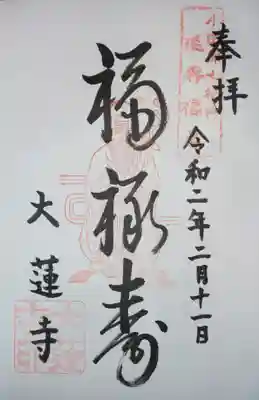 奉拝
令和二年二月十一日
福禄寿
大蓮寺